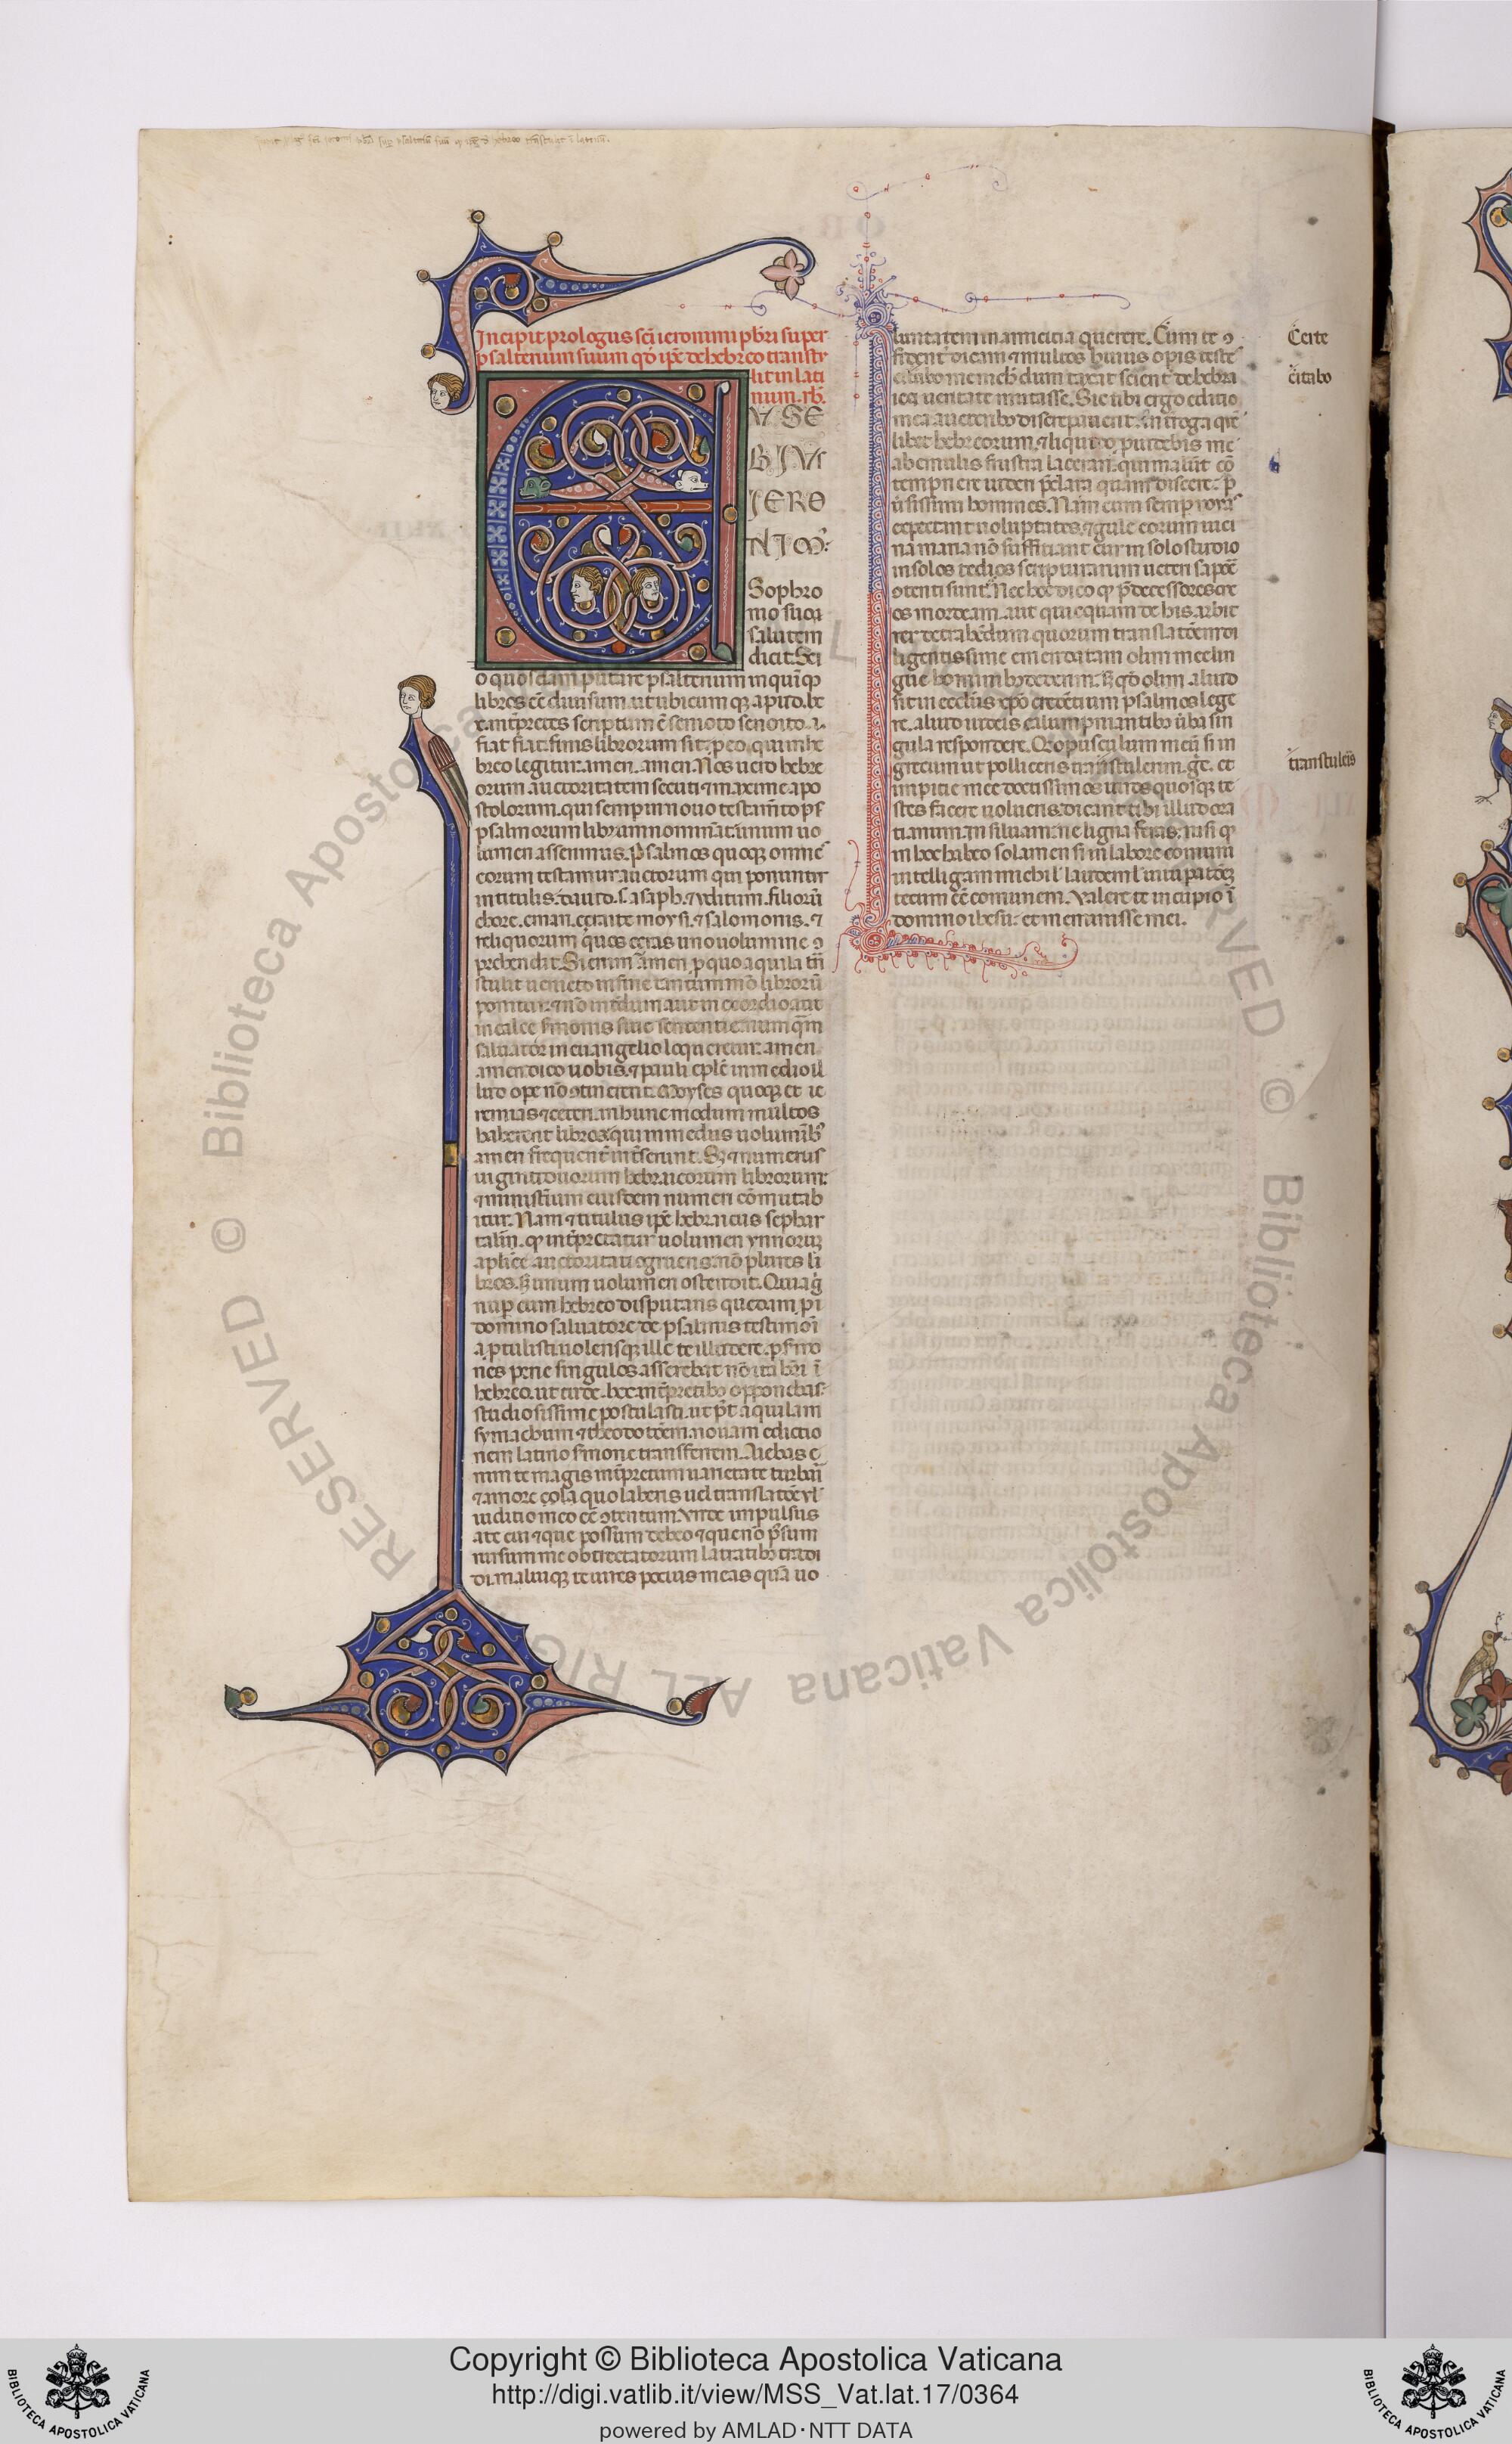 Incipit prologus sc̄i ieronimi pb̄ri super
psalterium suum qd̄ ip̄e de hebreo transtu
lit in lati
num. rb̄.
VSE
BIVS
IERO
NIM9:
Sophro
nio suo
salutem
dicit. Sci
o quosdam putare psalterium in qui̅q3
libros ēe diuisum. ut ubicumq3 apud. lxx
interpretes scriptum ē
fiat fiat. finis librorum sit. p̱ eo qui in he
breo legitur. amen. amen. Nos uero hebre
orum auctoritatem secuti ⁊ maxime apo
stolorum. qui semp̱ in nouo testam̄to
psalmorum librum nominat. unum uo
lumen asserimus. Psalmos quoq3 omnes
eorum testamur auctorum qui ponuntur
in titulis. dauid. s. asaph. ⁊ yditum. filiorū
chore. eman. ezraite moysi. ⁊ salomonis. ⁊
reliquorum quos ezras uno uolumine ꝯ
prehendit. Si enim amen. p̱ quo aquila trā
stulit in fine tantummō librorū
ponitur. ⁊ nō int̄dum aut in exordio aut
in calce s̄monis siue sententie. numq̄m
saluator in euangelio loqueretur. amen
amen dico uobis. ⁊ pauli ep̄le in medio il
lud ope nō ꝯtinerent. Moyses quoq3 et ie
remias ⁊ ceteri in hunc modum multos
haberent libros. qui in medijs uoluminib3
amen frequent̄ int̄serunt. S3 ⁊ numerus
uigintiduorum hebraicorum librorum:
⁊ministerium eiusdem numeri cōmutab
itur. Nam ⁊ titulus ip̄e hebraicus sephar
talim. q̱ int̄pretatur uolumen ynnorum
ap̄lice auctoritati ꝯgruens. nō plures li
bros. s3 unum uolumen ostendit. Quia g̊
nup̱ cum hebreo disputans quedam. p̱
domino saluatore de psalmis testimoī
a p̱tulisti. uolensq3 ille te illudere. p̱ s̄mo
nes pene singulos asserebat nō ita hr̄i ī
hebreo. ut tu de. lxx. int̄pretibꝫ opponebas:
studiosissime postulasti. ut p̄t aquilam
symachum ⁊ theodotōem. nouam edictio
nem latino s̄mone transferrem. Aiebas e
nim te magis int̄pretum uarietate turbari
⁊ amore quo laberis uel translatōe ul̄
iuditio meo ēe ꝯtentum. Vnde impulsus
a te cui ⁊ que possum debeo ⁊ que nō possum
rursum me obtrectatorum latratibꝫ tradi
di. maluiq3 te uires pocius meas quā uo
luntatem in amicicia querere. Cum te ꝯ
fident̄ dicam ⁊ multos huius op̱is testes
citabo me dum taxat scient̄ de hebra
ica ueritate mutasse. Sic ubi ergo editio
mea a ueteribꝫ discrepauerit. int̄roga quē
libet hebreorum. ⁊ liquido p̱uidebis me
ab emulis frustra lacerari. qui malūt cō
tempnere uideri p̄clara quam discere: p̱
u̅sissimi homines. Nam cum semp̱ nouas
expectant uoluptates. ⁊ gule eorum uici
na maria nō sufficiant. cur in solo studio
in solos scripturarum ueteri sapore
ꝯtenti sunt. Nec hec dico q̱ p̄decessores me
os mordeam. aut quicquam de his arbit
rer detrahēdum quorum translatōem di
ligentissime emendatam olim mee lin
gue hominibꝫ dederim. s3 qd̄ olim aliud
sit in ecclīis xp̄o credētium psalmos lege
re. aliud iudeis calumpniantibꝫ uerba sin
gula respondere. Qd̄ opusculum meū si in
grecum ut polliceris transtulerim. gre. et
imperitie mee doctissimos uiros quosq3 te
stes facere uolueris. dicam tibi illud ora
tianum. In siluam ne ligna feras. nisi q̱
in hoc habeo solamen si in labore comuni
intelligam michi l̄ laudem l̄ uitup̱atōem
tecum ēe comunem. Valere te incupio ī
domino ihesu: et meminisse mei.
Certe
citabo
transtuleris
Copyright © Biblioteca Apostolica Vaticana
http://digi.vatlib.it/view/MSS_Vat.lat.17/0364
powered by AMLAD·NTT DATA
BIBLIOTECA APOSTOLICA VATICANA
BIBLIOTECA APOSTOLICA VATICANA
© Biblioteca Apostolica Vaticana ALL RIGHTS RESERVED